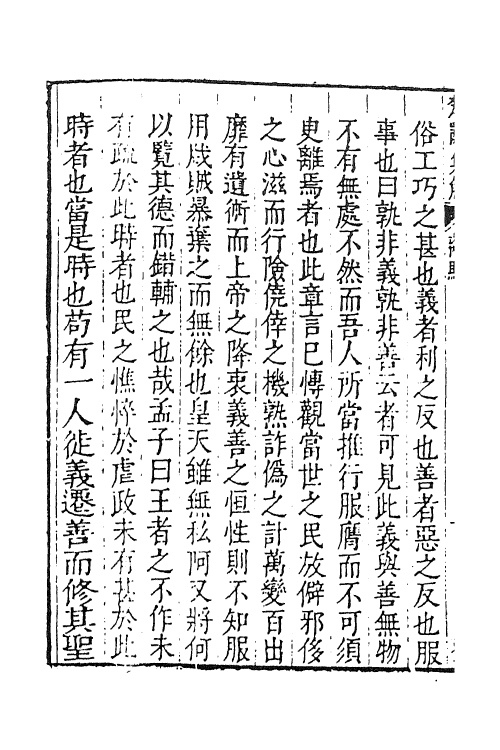 俗工巧之甚也義者利之反也善者惡之反也服
事也曰孰非義孰非善云者可見此義與善無物
不有無處不然而吾人所當推行服膺而不可須
臾離焉者也此章言已慱觀當世之民放僻邪侈
之心滋而行險僥倖之機熟詐僞之計萬變百出
靡有遺術而上帝之降衷義善之恒性則不知服
用戕賊暴棄之而無餘也皇天雖無私阿又將何
以覧其德而錯輔之也哉孟子曰王者之不作未
有疏於此時者也民之憔悴於虐政未有甚於此
時者也當是時也茍有一人徙義遷善而修其聖